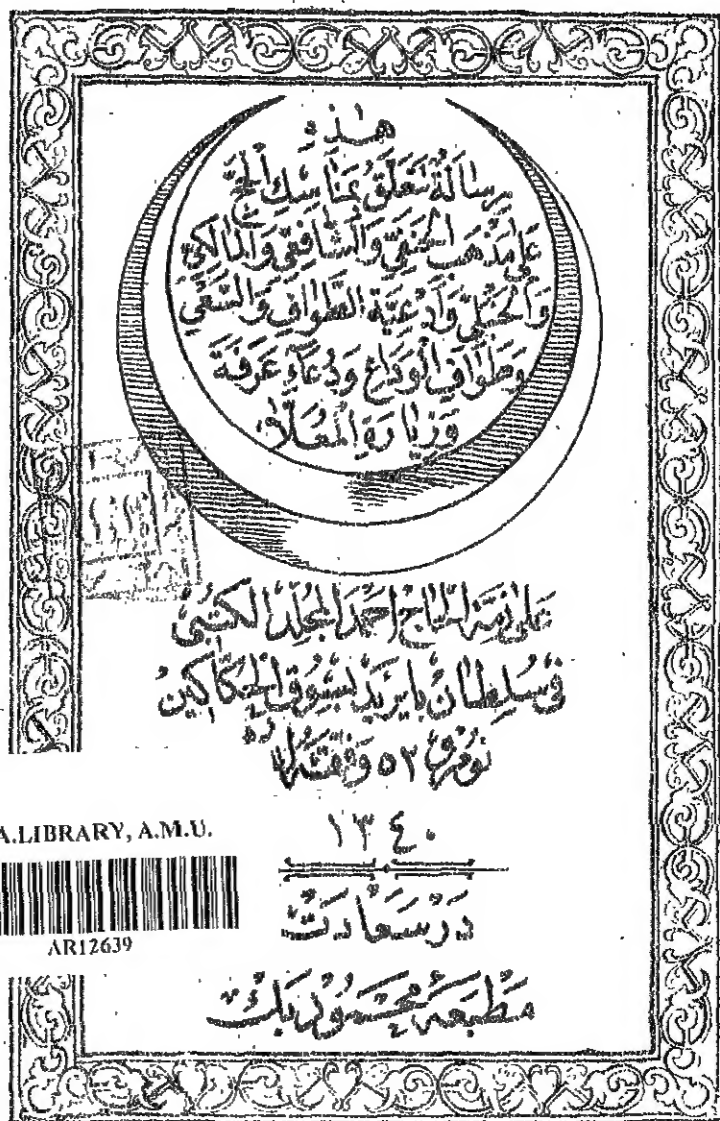 هذه
رِسَالَةٌ تَتَعَلَّقُ بِمَنَاسِكِ الْحَجِّ
عَلَى مَذْهَبِ الْحَنَفِيِّ وَالشَّافِعِيِّ وَالْمَالِكِيِّ
وَالْحَنْبَلِيِّ وَأَدْعِيَةِ الطَّوَافِ وَالسَّعْيِ
وَطَوَافِ الْوَدَاعِ وَدُعَاءِ عَرَفَةَ
وَزِيَارَةِ الْمُعَلَّا
عَلَى ذِمَّةِ الْحَاجِّ أَحْمَدَ الْمُجَلِّدِ الْكُتُبِيِّ
فِي سُلْطَانْ بَايَزِيدْ بِسُوقِ الْحَكَّاكِينَ
نومرو ٥٢
١٣٤٠
دَرْسَعَادَتْ
مَطْبَعَهٔ مَحْمُودْ بَكْ
A.LIBRARY, A.M.U.
AR12639